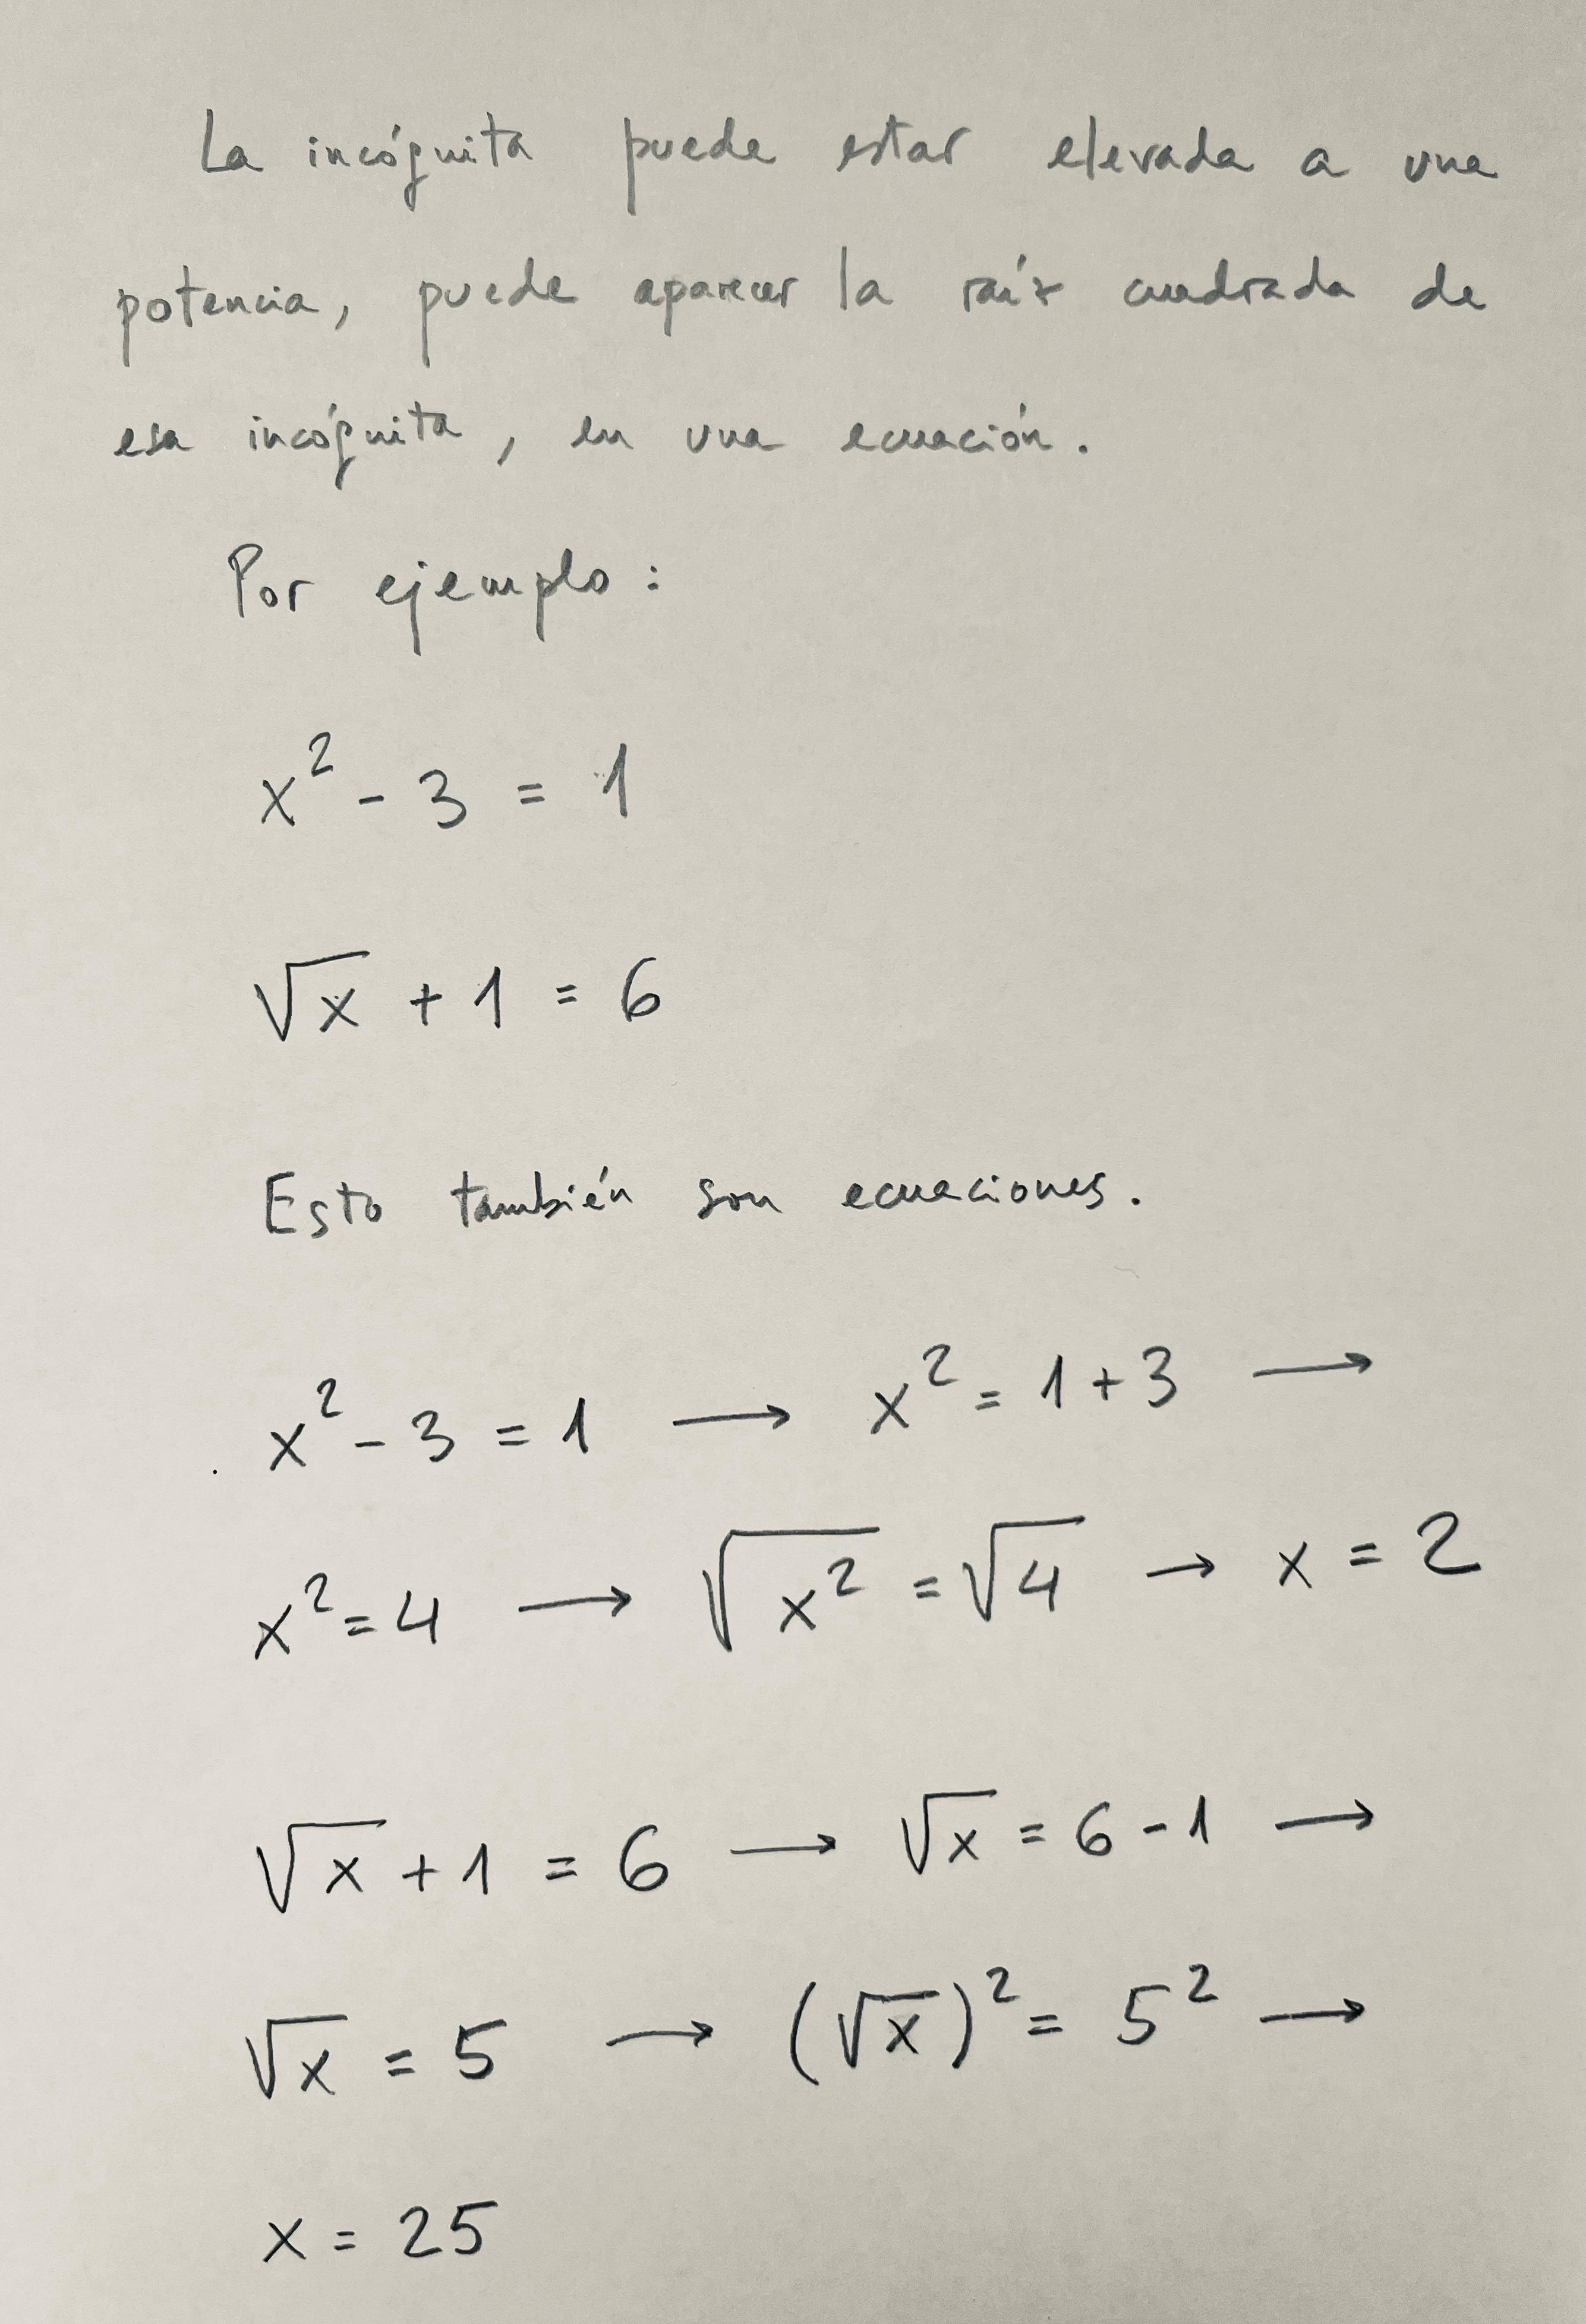 La incógnita puede estar elevada a una
potencia, puede aparecer la raíz cuadrada de
esa incógnita, en una ecuación.
Por ejemplo:
x² - 3 = 1
√x + 1 = 6
Esto también son ecuaciones.
x² - 3 = 1 → x² = 1 + 3 →
x² = 4 → √x² = √4 → x = 2
√x + 1 = 6 → √x = 6 - 1 →
√x = 5 → (√x)² = 5² →
x = 25